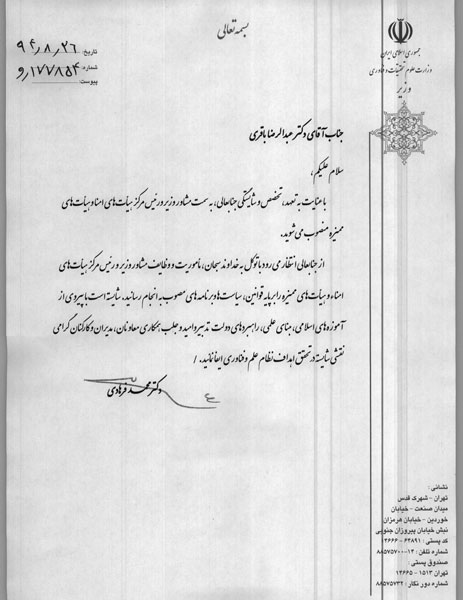 بسمه تعالی
جمهوری اسلامی ایران
وزارت علوم، تحقیقات و فناوری
وزیر
تاریخ: ۹۴٫۸٫۲۶
شماره: و/۱۷۷۸۵۴
پیوست:
جناب آقای دکتر عبدالرضا باقری
سلام علیکم،
با عنایت به تعهد، تخصص و شایستگی جنابعالی، به سمت مشاور وزیر و رئیس مرکز هیأت‌های امناء و هیأت‌های
ممیزه منصوب می شوید.
از جنابعالی انتظار می رود با توکل به خداوند سبحان، ماموریت و وظایف مشاور وزیر و رئیس مرکز هیأت‌های
امناء و هیأت‌های ممیزه را بر پایه قوانین، سیاست‌ها و برنامه های مصوب به انجام رسانید. شایسته است با پیروی از
آموزه های اسلامی، مبنای علمی، راهبردهای دولت تدبیر و امید و جلب همکاری معاونان، مدیران و کارکنان گرامی
نقشی شایسته در تحقق اهداف نظام علم و فناوری ایفا نمائید. /
دکتر محمد فرهادی
نشانی:
تهران - شهرک قدس
میدان صنعت - خیابان
خوردین - خیابان هرمزان
نبش خیابان پیروزان جنوبی
کد پستی: ۶۴۸۹۱ - ۱۴۶۶۶
شماره تلفن: ۱۴-۸۸۵۷۵۷۰۰
صندوق پستی:
تهران ۱۵۱۳ - ۱۴۶۶۵
شماره دور نگار: ۸۸۵۷۵۷۳۲